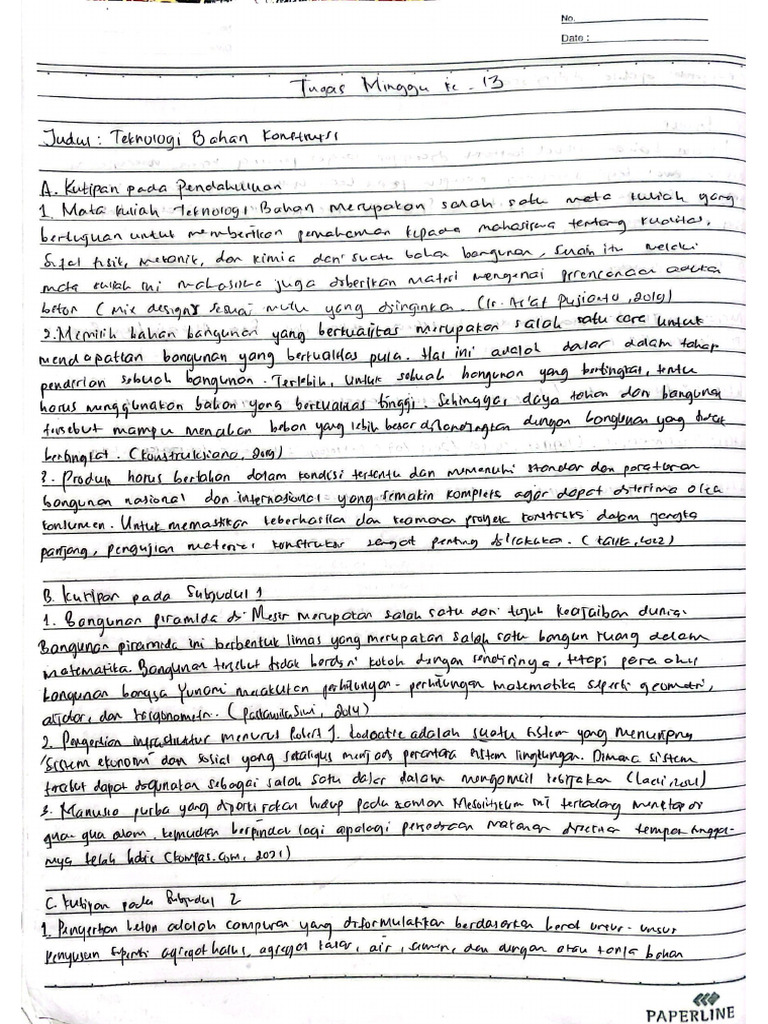 No.
Date :
Tugas Minggu ke - 13
Judul : Teknologi Bahan Konstruksi
A. Kutipan pada Pendahuluan
1. Mata kuliah Teknologi Bahan merupakan salah satu mata kuliah yang
bertujuan untuk memberikan pemahaman kepada mahasiswa tentang kualitas,
sifat fisik, mekanik, dan kimia dari suatu bahan bangunan, selain itu melalui
mata kuliah ini mahasiswa juga diberikan materi mengenai perencanaan aduka
beton (mix design) sesuai mutu yang diinginka. (Ir. As'at Pujianto, 2019)
2. Memilih bahan bangunan yang berkualitas merupakan salah satu cara untuk
mendapatkan bangunan yang berkualitas pula. Hal ini adalah dasar dalam tahap
pendirian sebuah bangunan. Terlebih, untuk sebuah bangunan yang bertingkat, tentu
harus menggunakan bahan yang berkualitas tinggi. Sehingga, daya tahan dari bangunan
tersebut mampu menahan beban yang lebih besar dibandingkan dengan bangunan yang tidak
bertingkat. (Konstruksiana, 2019)
3. Produk harus bertahan dalam kondisi tertentu dan memenuhi standar dan peraturan
bangunan nasional dan internasional yang semakin kompleks agar dapat diterima oleh
konsumen. Untuk memastikan keberhasilan dan keamanan proyek konstruksi dalam jangka
panjang, pengujian material konstruksi sangat penting dilakukan. (2022)
B. Kutipan pada Subjudul 1
1. Bangunan piramida di Mesir merupakan salah satu dari tujuh keajaiban dunia.
Bangunan piramida ini berbentuk limas yang merupakan salah satu bangun ruang dalam
matematika. Bangunan tersebut tidak berdiri kokoh dengan sendirinya, tetapi para ahli
bangunan bangsa Yunani melakukan perhitungan - perhitungan matematika seperti geometri,
aljabar, dan trigonometri. (2014)
2. Pengertian infrastruktur menurut Robert J. Kodoatie adalah suatu sistem yang menunjang
sistem ekonomi dan sosial yang sekaligus menjadi perantara sistem lingkungan. Dimana sistem
tersebut dapat digunakan sebagai salah satu dasar dalam mengambil kebijakan (2021)
3. Manusia purba yang diperkirakan hidup pada zaman Mesolitikum ini terkadang menetap di
gua-gua alam, kemudian berpindah lagi apalagi persediaan makanan disekitar tempat tinggal-
nya telah habis (Kompas.com, 2021)
C. Kutipan pada Subjudul 2
1. Pengertian beton adalah campuran yang diformulasikan berdasarkan berat unsur - unsur
penyusun seperti agregat halus, agregat kasar, air, semen, dan dengan atau tanpa bahan
PAPERLINE